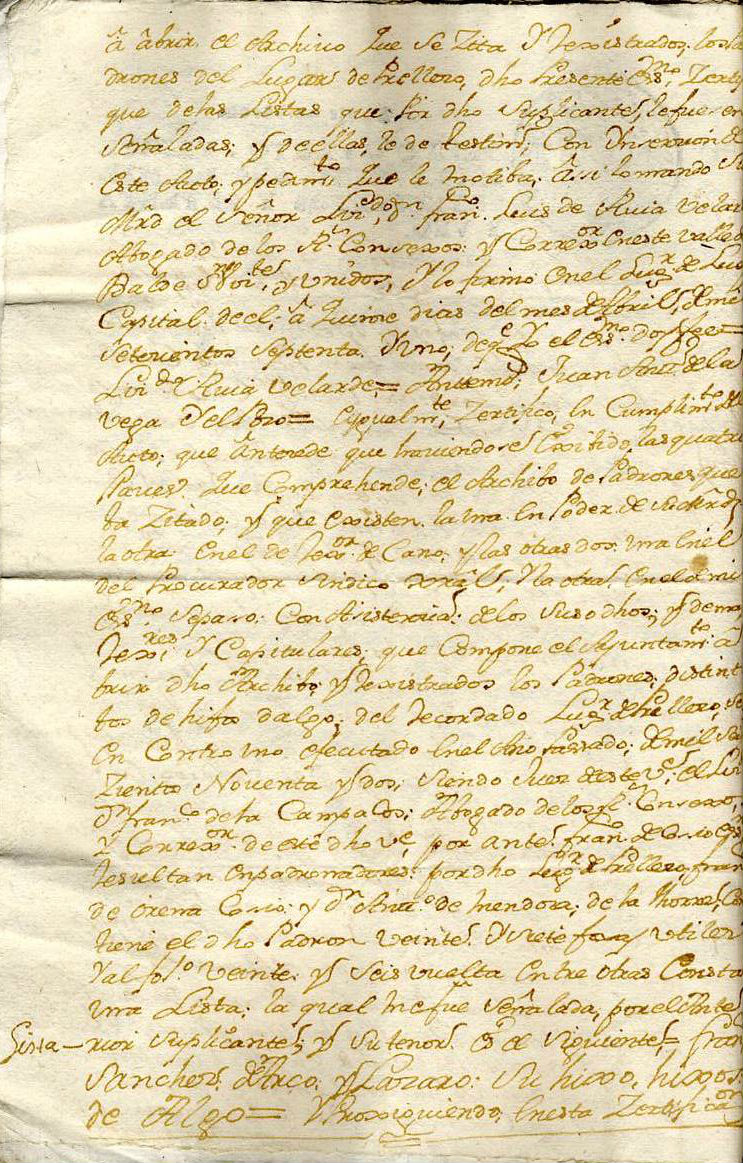 â âbrir, el Archivo que se Zita Y rexistrados, los pa
drones del Lugar de Pellezo, dho presente Essno Zerti
que de las Listas que por dho suplicante, le fueren
señaladas; y de ellas, le de testimo, Con Ynserzion de
este Auto; y pedimto que le motiba; Assi lo mando su
Mrd el Señor Lizdo Dn Franco Luis de Rivia Velar
Abogado de los Rs Consexos: y Correxor en este valle d
Balde y unidos, Y lo firmo en el Lugr de
Capital de el, â quinze dias del mes de Abril, de mil
setezientos septenta Y uno; de qe Yo el Essno doy fee=
Lizdo Rivia Velarde,= Antemi; Juan Anto de la
vega Y el Pozo= Eygualmte Zertifico, en Cumplimto del
Auto; que antezede que haviendose Exsibido, las quatro
llaves que Comprehende; el Archibo de Padrones que
ba Zitado y que existen la una en Poder de su Mrd
la otra en el de Rexor de Cano, y las otras dos una en el
del Procurador sindico xeneral, Y la otra en el de mi
Essno Separo: Con Asistenzia de los susodhos; y demas
Rexres Y Capitulares; que Compone el Ajuntamto a
brir dho Archibo; y rexistrados los Padrones; distint
tos de hijos dalgo; del recordado Lugr de Pellezo, se
en Contro uno efecutado en el Año passado; de mil se
Zientos Noventa y dos; siendo Juez deste Ve el Liz
Dn Franco de la Campa Cos; Abogado de los Rs Consexos,
Y Correxor de este dho Ve por ante Franco de Cosio
resultan enpadronadores por dho Lugr de Pellezo, Fran
de orena Cosio; y Dn Anto de Mendoza; de la Thorre, Con
tiene el dho Padron veinte Y siete foxas utiles
Y al folo veinte y seis vuelta entre otras Consta
una Lista; la qual me fue señalada, por el Ante
Lista – rior suplicante; y su tenor es el siguiente= Fran
Sanchez de Arco; y Lazaro: su hixo, hixos
de Algo= Y Prosiguiendo en esta Zertificaon